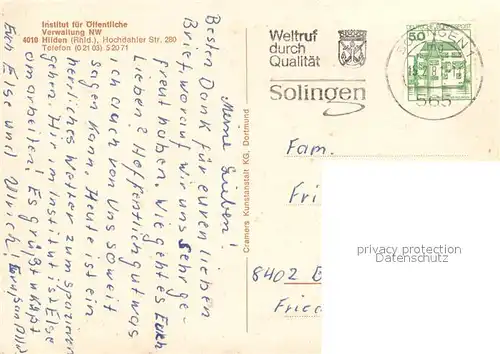 Institut für Öffentliche
Verwaltung NW
4010 Hilden (Rhld.), Hochdahler Str. 280
Telefon (0 21 03) 5 20 71
Meine Lieben!
Besten Dank für euren lieben
Brief worauf wir uns sehr ge-
freut haben. Wie geht es Euch
Lieben? Hoffentlich gut was
ich auch von Uns soweit
sagen kann. Heute ist ein
herrliches Wetter zum spazieren
gehen. Hir im Institut ist Else
am arbeiten! Es grüßt u küßt
Eure Else und Ulrich!
Cramers Kunstanstalt KG, Dortmund
Weltruf
durch
Qualität
Solingen
50
SOLINGEN 1
565
Fam.
Fri
8402
Fried
privacy protection